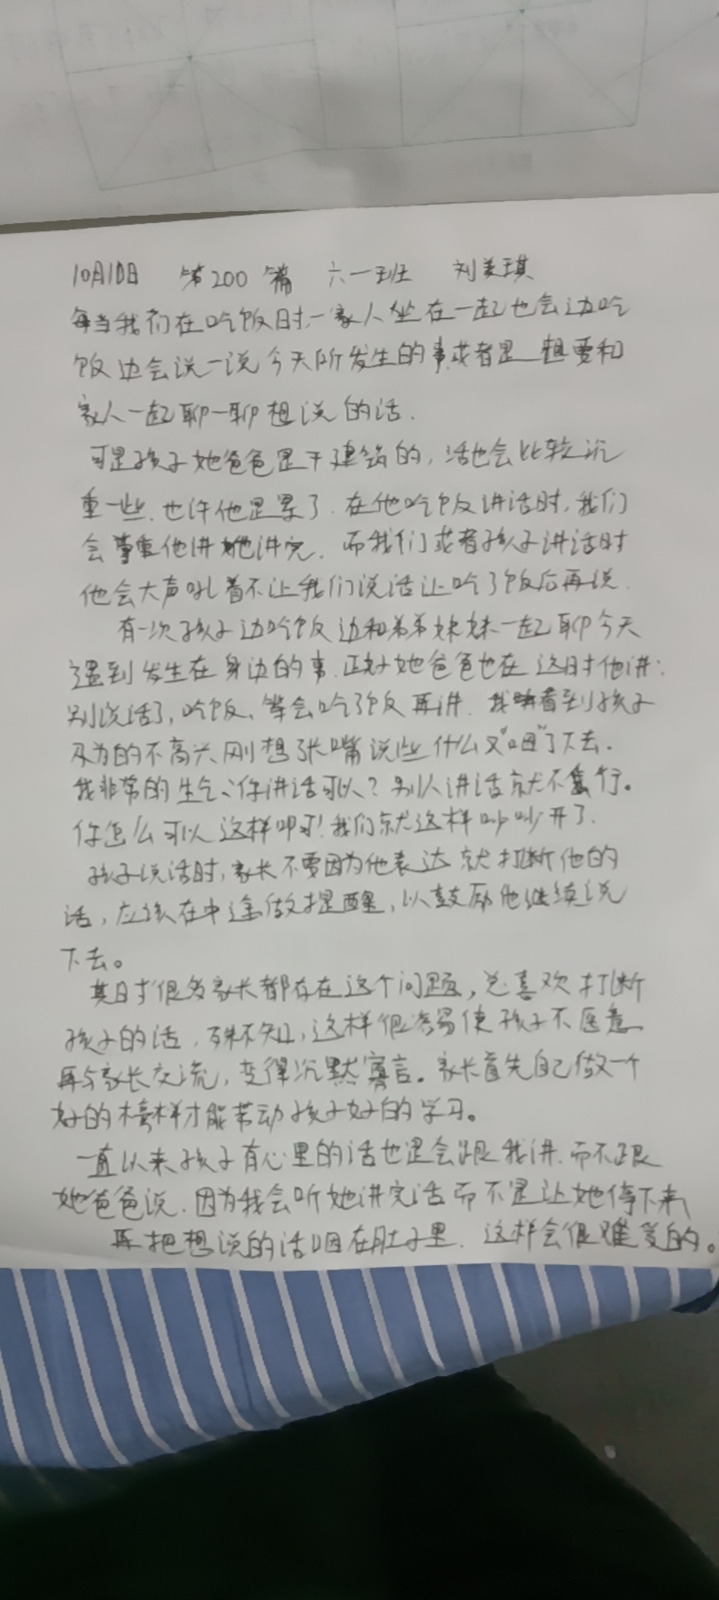 10月10日 第200篇 六一班 刘美琪
每当我们在吃饭时,一家人坐在一起也会边吃
饭边会说一说今天所发生的事或者是想要和
家人一起聊一聊想说的话.
可是孩子她爸爸是干建筑的,活也会比较沉
重一些.也许他是累了.在他吃饭讲话时,我们
会尊重他讲她讲完.而我们或者孩子讲话时
他会大声吼着不让我们说话让吃了饭后再说.
有一次孩子边吃饭边和弟弟妹妹一起聊今天
遇到发生在身边的事.正好她爸爸也在这时他讲:
别说话了,吃饭、等会吃了饭再讲.我看到孩子
及为的不高兴刚想张嘴说些什么又"咽"了下去.
我非常的生气、你讲话可以?别人讲话就不行。
你怎么可以这样叩可!我们就这样吵吵开了.
孩子说话时,家长不要因为他表达就打断他的
话,应该在中途做提醒,以鼓励他继续说
下去。
其时很多家长都存在这个问题,总喜欢打断
孩子的话,殊不知,这样很容易使孩子不愿意
再与家长交流,变得沉默寡言。家长首先自己做一个
好的榜样才能带动孩子好的学习。
一直以来孩子有心里的话也是会跟我讲.而不跟
她爸爸说.因为我会听她讲完话而不是让她停下来
再把想说的话咽在肚子里.这样会很难受的。